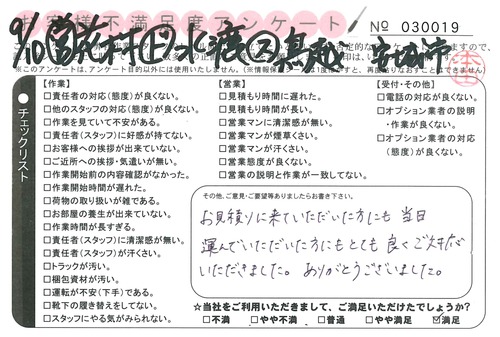 お客様不満足度アンケート
No 030019
※このアンケートは、アンケート目的以外には使用いたしません。
チェックリスト
【作業】
□責任者の対応(態度)が良くない。
□他のスタッフの対応(態度)が良くない。
□作業を見ていて不安がある。
□責任者(スタッフ)に好感が持てない。
□お客様への挨拶が出来ていない。
□ご近所への挨拶・気遣いが無い。
□作業開始前の内容確認がなかった。
□作業開始時間が遅れた。
□荷物の取り扱いが雑である。
□お部屋の養生が出来ていない。
□作業時間が長すぎる。
□責任者(スタッフ)に清潔感が無い。
□責任者(スタッフ)が汗くさい。
□トラックが汚い。
□梱包資材が汚い。
□運転が不安(下手)である。
□靴下の履き替えをしてない。
□スタッフにやる気がみられない。
【営業】
□見積もり時間に遅れた。
□見積もり時間が長い。
□営業マンに清潔感が無い。
□営業マンが煙草くさい。
□営業マンが汗くさい。
□営業態度が良くない。
□営業の説明と作業が一致してない。
【受付・その他】
□電話の対応が良くない。
□オプション業者の説明
・作業が良くない。
□オプション業者の対応
(態度)が良くない。
その他、ご意見・ご要望等ありましたらお書き下さい。
お見積りに来ていただいた方にも 当日
運んでいただいた方にもとても良くご対応
いただきました。ありがとうございました。
☆当社をご利用いただきまして、ご満足いただけたでしょうか?
□不満 □やや不満 □普通 □やや満足 □満足